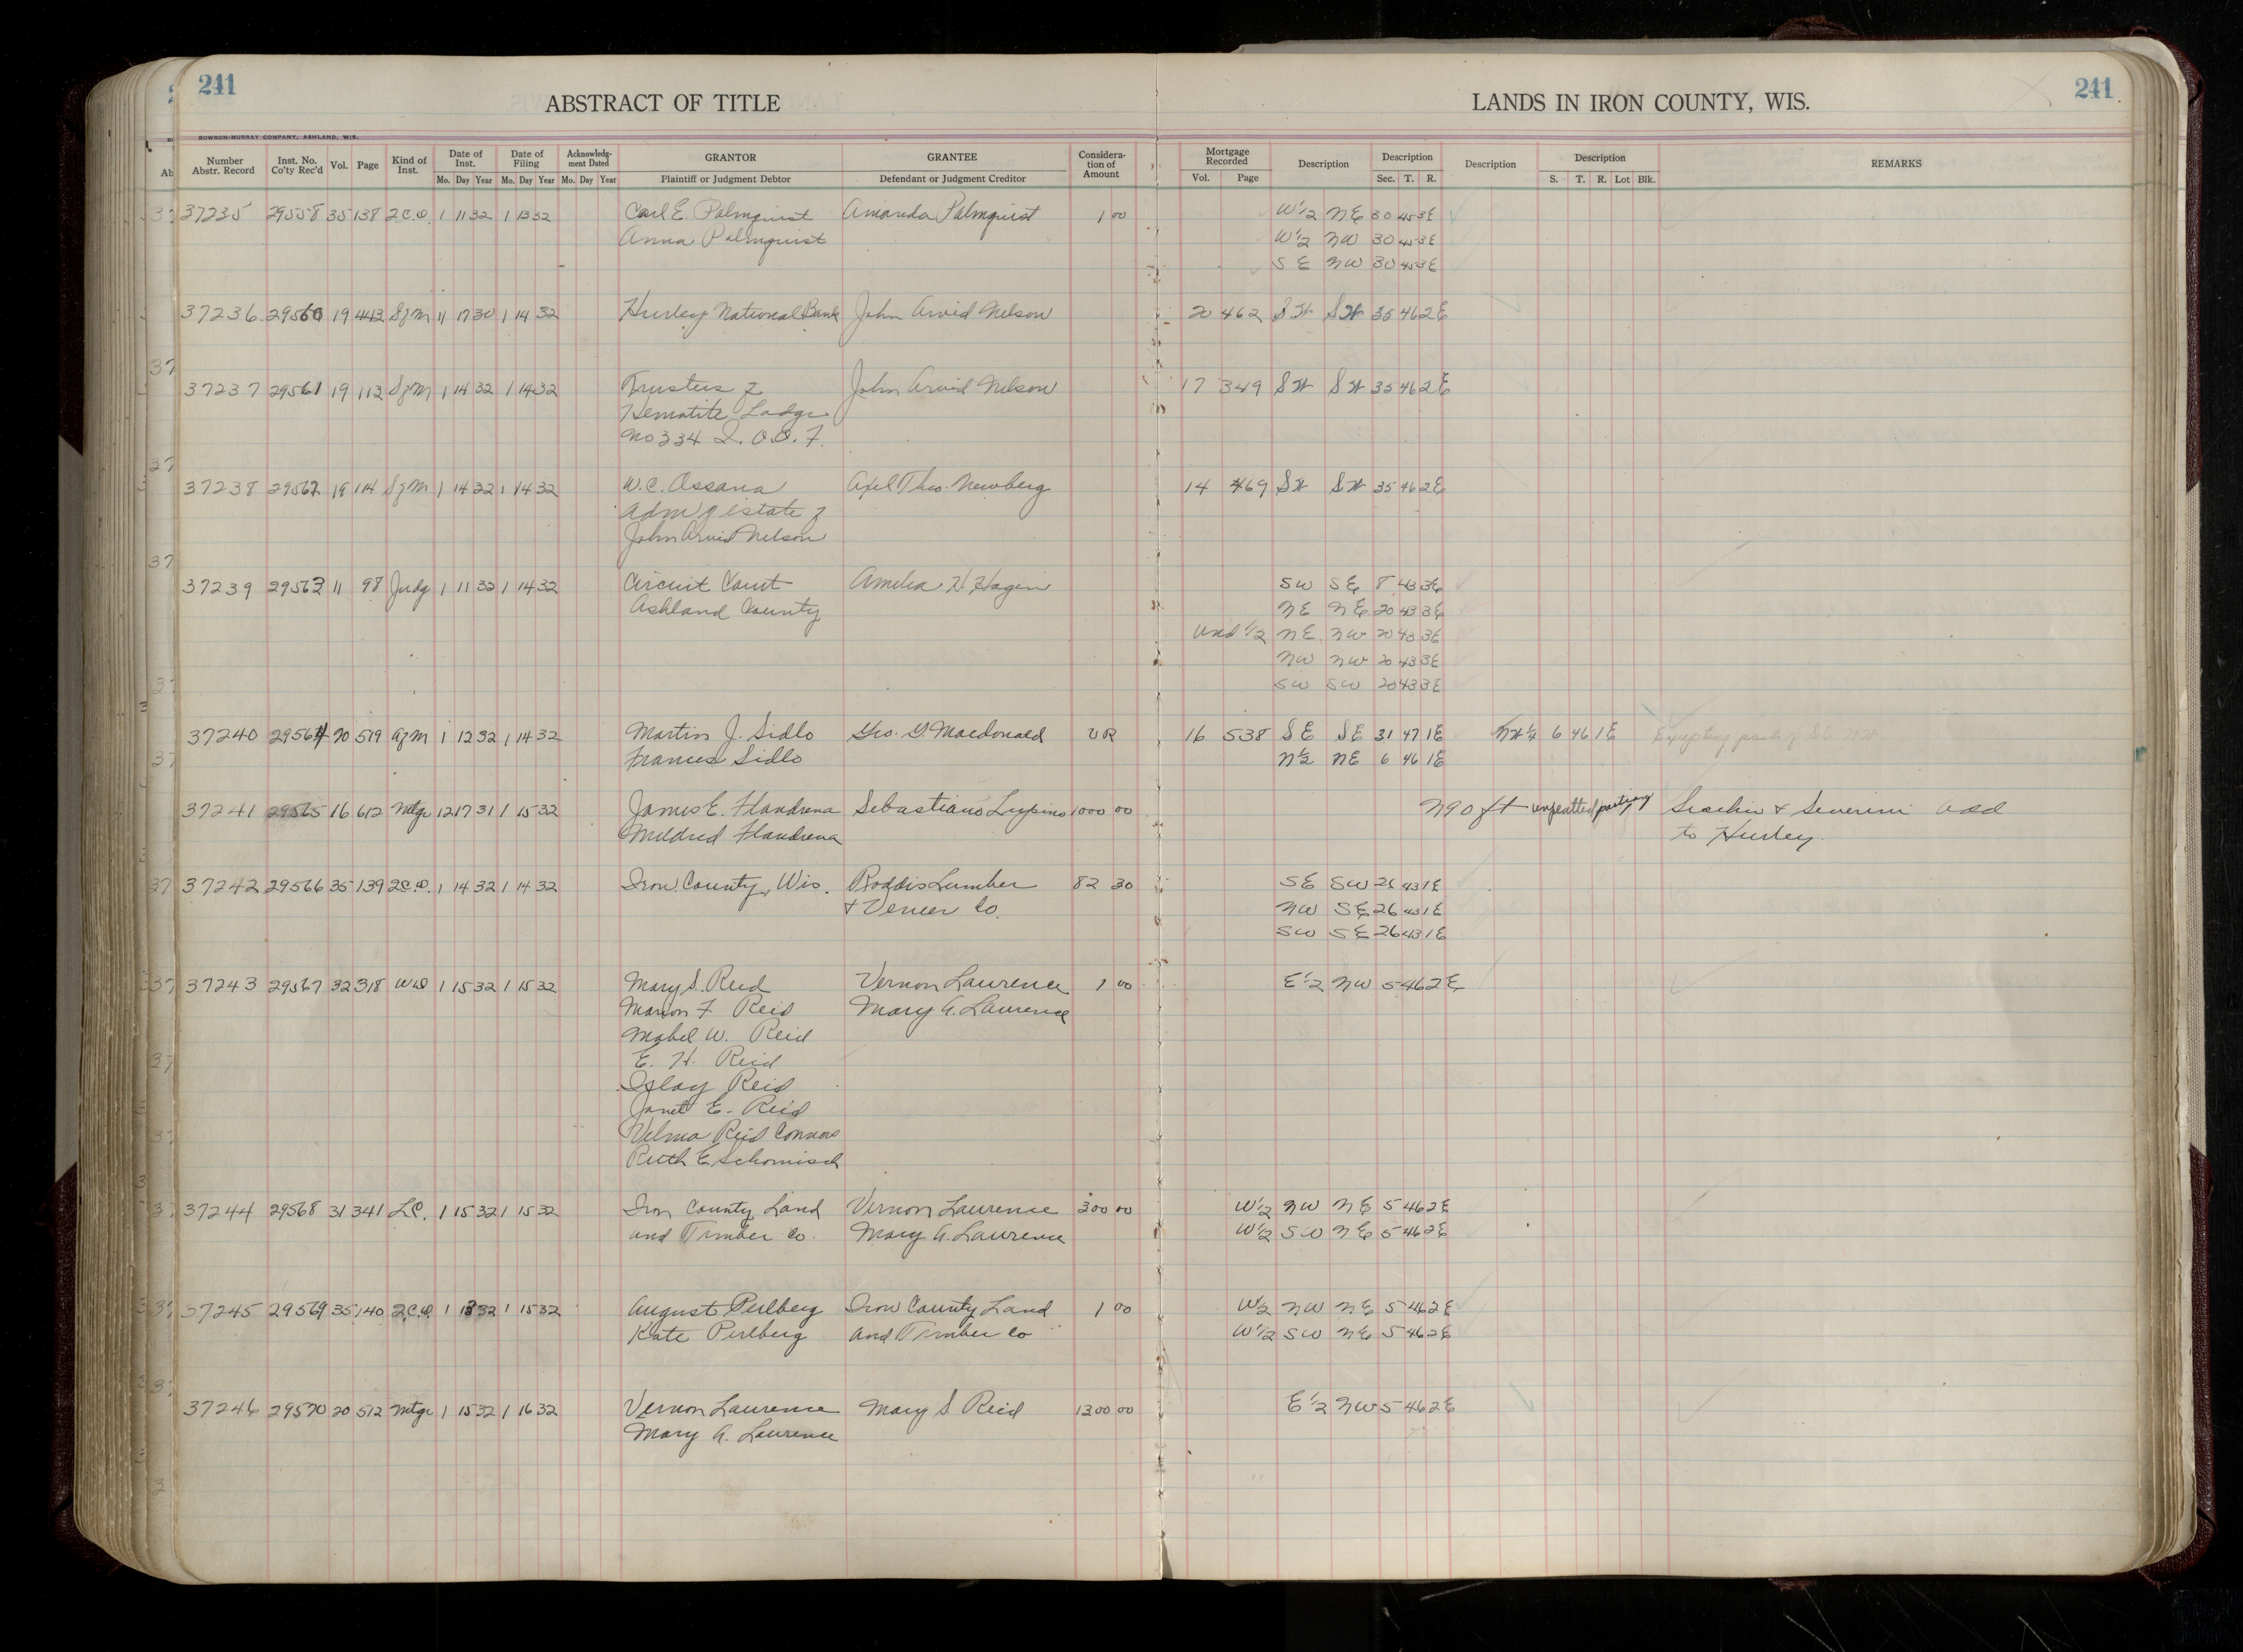 241
ABSTRACT OF TITLE
LANDS IN IRON COUNTY, WIS.
241
BOWRON-MURRAY COMPANY, ASHLAND, WIS.
Number Abstr. Record Inst. No. Co'ty Rec'd Vol. Page Kind of Inst. Date of Inst. Date of Filing Acknowledgment Dated GRANTOR GRANTEE Consideration of Amount Mortgage Recorded Description Description Description Description REMARKS
Mo. Day Year Mo. Day Year Mo. Day Year Plaintiff or Judgment Debtor Defendant or Judgment Creditor Vol. Page Sec. T. R. S. T. R. Lot Blk.
37235 29558 35 138 2C.D. 1 11 32 1 13 32 Carl E. Palmquist Amanda Palmquist 1 00 W½ NE 30 45 3E
Anna Palmquist W½ NW 30 45 3E
SE NW 30 45 3E
37236 29560 19 443 SgM 11 17 30 1 14 32 Hurley National Bank John Arvid Nelson 20 462 SW SW 35 46 2E
37237 29561 19 112 SgM 1 14 32 1 14 32 Trustees of John Arvid Nelson 17 349 SW SW 35 46 2E
Hematite Lodge
No 334 I.O.O.F.
37238 29562 19 114 SgM 1 14 32 1 14 32 W.C. Ossana Axel Theo. Newberg 14 469 SW SW 35 46 2E
Adm of estate of
John Arvid Nelson
37239 29563 11 98 Judg 1 11 32 1 14 32 Circuit Court Amelia H. Hagen SW SE 8 43 3E
Ashland County NE NE 20 43 3E
und ½ NE NW 20 43 3E
NW NW 20 43 3E
SW SW 20 43 3E
37240 29564 20 519 AgM 1 12 32 1 14 32 Martin J. Sidlo Geo. G. Macdonald VR 16 538 SE SE 31 47 1E NW¼ 6 46 1E Excepting part of
Frances Sidlo N½ NE 6 46 1E
37241 29565 16 612 Mtge 12 17 31 1 15 32 James E. Flandrena Sebastiano Lupino 1000 00 N 90 ft unplatted part & Severini Add
Mildred Flandrena to Hurley.
37242 29566 35 139 2C.D. 1 14 32 1 14 32 Iron County, Wis. Roddis Lumber 82 30 SE SW 26 43 1E
& Veneer Co. NW SE 26 43 1E
SW SE 26 43 1E
37243 29567 32 318 WD 1 15 32 1 15 32 Mary S. Reid Vernon Laurence 1 00 E½ NW 5 46 2E
Marion F. Reid Mary A. Laurence
Mabel W. Reid
E. H. Reid
Islay Reid
Janet E. Reid
Velma Reid Connors
Ruth E. Schomisch
37244 29568 31 341 LC. 1 15 32 1 15 32 Iron County Land Vernon Laurence 300 00 W½ NW NE 5 46 2E
and Timber Co. Mary A. Laurence W½ SW NE 5 46 2E
37245 29569 35 140 2C.D. 1 13 32 1 15 32 August Perlberg Iron County Land 1 00 W½ NW NE 5 46 2E
Kate Perlberg and Timber Co W½ SW NE 5 46 2E
37246 29570 20 512 Mtge 1 15 32 1 16 32 Vernon Laurence Mary S Reid 1300 00 E½ NW 5 46 2E
Mary A. Laurence